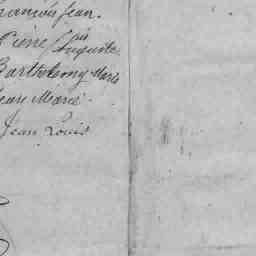 François Jean.
Pierre Auguste
Barthelemy Marie
Jean Marie
Jean Louis